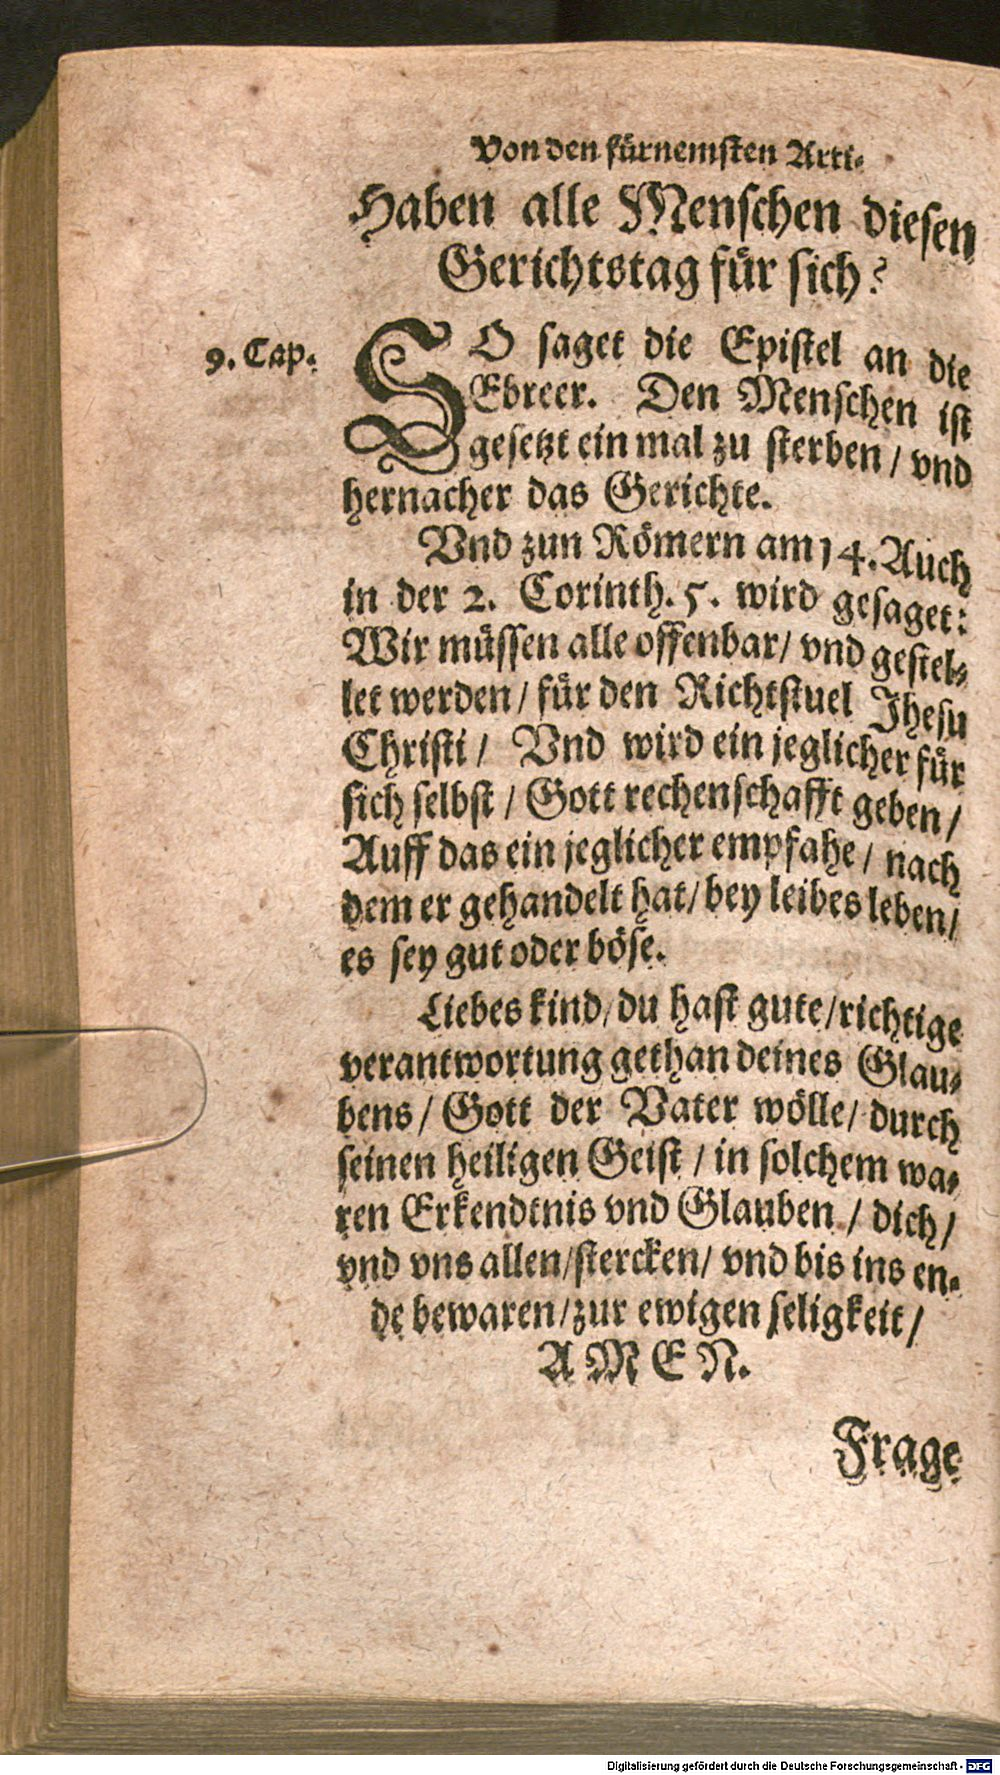 Von den fürnemsten Arti-
Haben alle Menschen diesen
Gerichtstag für sich?
9. Cap.
SO saget die Epistel an die
Ebreer. Den Menschen ist
gesetzt ein mal zu sterben / vnd
hernacher das Gerichte.
Vnd zun Römern am 14. Auch
in der 2. Corinth. 5. wird gesaget:
Wir müssen alle offenbar / vnd gestel-
let werden / für den Richtstuel Jhesu
Christi / Vnd wird ein jeglicher für
sich selbst / Gott rechenschafft geben /
Auff das ein jeglicher empfahe / nach
dem er gehandelt hat / bey leibes leben /
es sey gut oder böse.
Liebes kind / du hast gute / richtige
verantwortung gethan deines Glau-
bens / Gott der Vater wölle / durch
seinen heiligen Geist / in solchem wa-
ren Erkendtnis vnd Glauben / dich /
vnd vns allen / stercken / vnd bis ins en-
de bewaren / zur ewigen seligkeit /
AMEN.
Frage
Digitalisierung gefördert durch die Deutsche Forschungsgemeinschaft - DFG